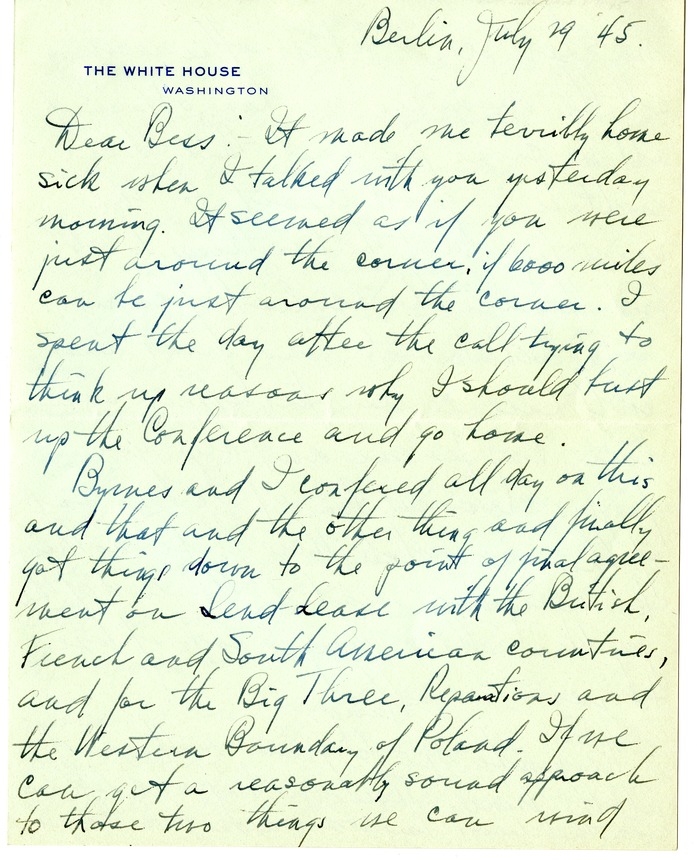 Berlin, July 29 '45.
THE WHITE HOUSE
WASHINGTON
Dear Bess:- It made me terribly home
sick when I talked with you yesterday
morning. It seemed as if you were
just around the corner, if 6000 miles
can be just around the corner. I
spent the day after the call trying to
think up reasons why I should bust
up the Conference and go home.
Byrnes and I confered all day on this
and that and the other thing and finally
got things down to the point of final agree-
ment on Lend Lease with the British,
French and South American countries,
and for the Big Three, Reparations and
the Western Boundary of Poland. If we
can get a reasonably sound approach
to those two things we can wind